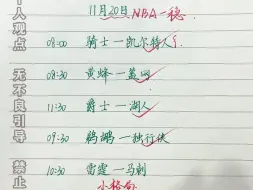 个人观点 无不良引导 禁止
11月20日NBA一稳
08:00 骑士一凯尔特人
08:30 黄蜂一篮网
11:30 爵士一湖人
09:30 鹈鹕一独行侠
10:30 雷霆一马刺
小格局